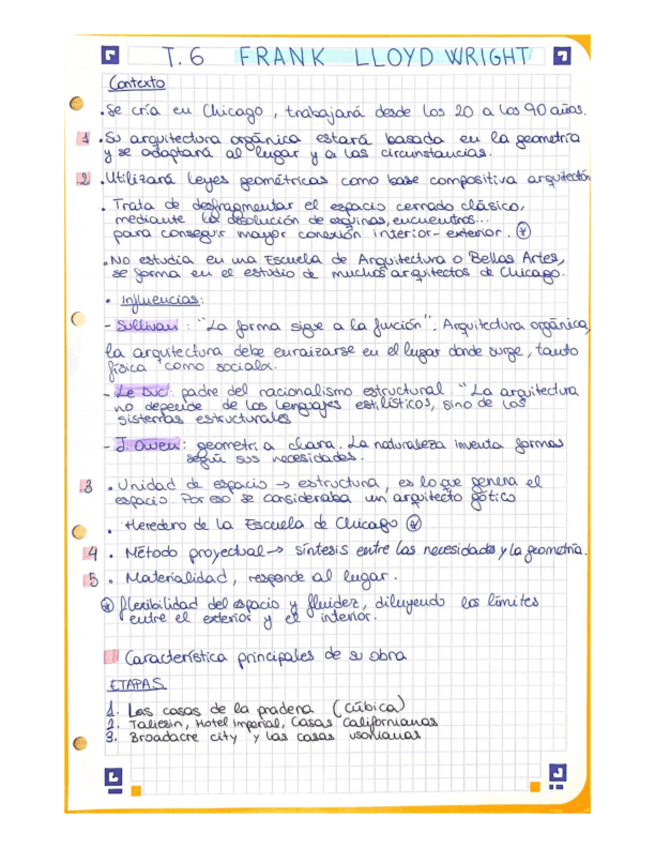 T. 6 FRANK LLOYD WRIGHT
Contexto
. Se cría en Chicago, trabajará desde los 20 a los 90 años.
1 . Su arquitectura orgánica estará basada en la geometría
y se adaptará al lugar y a las circunstancias.
2 . Utilizará leyes geométricas como base compositiva arquitectón
. Trata de desfragmentar el espacio cerrado clásico,
mediante la disolución de esquinas, encuentros...
para conseguir mayor conexión interior-exterior. *
. No estudia en una Escuela de Arquitectura o Bellas Artes,
se forma en el estudio de muchos arquitectos de Chicago.
• Influencias:
- Sullivan: "La forma sigue a la función". Arquitectura orgánica,
la arquitectura debe enraizarse en el lugar donde surge, tanto
física como social.
- Le Duc: padre del racionalismo estructural. "La arquitectura
no depende de los lenguajes estilísticos, sino de los
sistemas estructurales
- J. Owen: geometría clara. La naturaleza inventa formas
según sus necesidades.
3 . Unidad de espacio → estructura, es lo que genera el
espacio. Por eso se consideraba un arquitecto gótico
. Heredero de la Escuela de Chicago *
4 . Método proyectual → síntesis entre las necesidades y la geometría.
5 . Materialidad, responde al lugar.
* flexibilidad del espacio y fluidez, diluyendo los límites
entre el exterior y el interior.
Característica principales de su obra
ETAPAS
1. Las casas de la pradera (cúbica)
2. Taliesin, Hotel imperial, Casas Californianas
3. Broadacre city y las casas usonianas